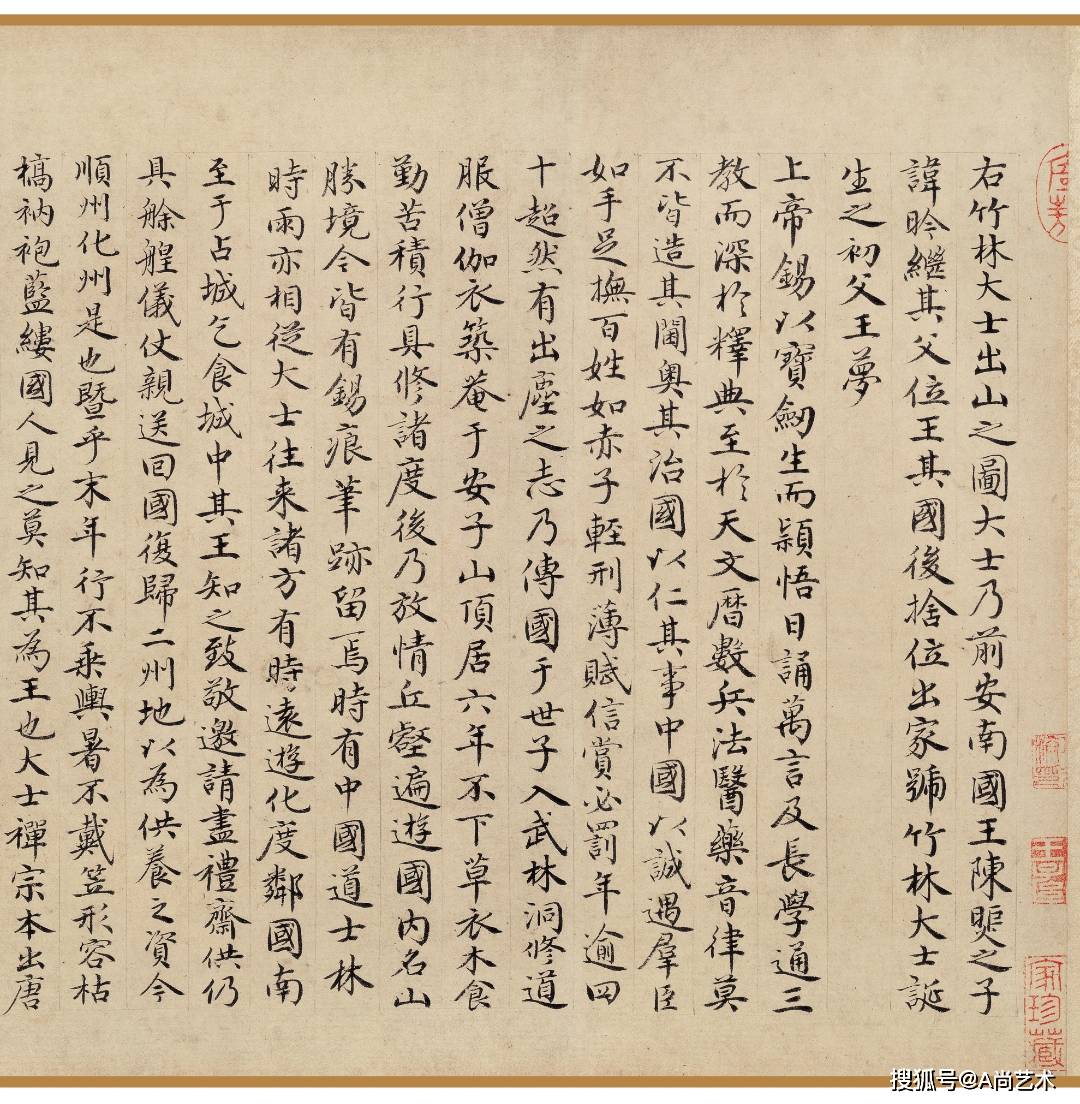 右竹林大士出山之圖大士乃前安南國王陳之子
諱昑繼其父位王其國後捨位出家號竹林大士誕
生之初父王夢
上帝錫以寶劒生而頴悟日誦萬言及長學通三
教而深於釋典至於天文曆數兵法醫藥音律莫
不皆造其閫奥其治國以仁其事中國以誠遇羣臣
如手足撫百姓如赤子輕刑薄賦信賞必罰年逾四
十超然有出塵之志乃傳國于世子入武林洞修道
服僧伽衣築菴于安子山頂居六年不下草衣木食
勤苦積行具修諸度後乃放情丘壑遍遊國内名山
勝境今皆有錫痕筆跡留焉時有中國道士林
時雨亦相從大士往来諸方有時遠遊化度鄰國南
至于占城乞食城中其王知之致敬邀請盡禮齋供仍
具艅艎儀仗親送回國復歸二州地以為供養之資今
順州化州是也暨乎末年行不乗輿暑不戴笠形容枯
槁衲袍藍縷國人見之莫知其為王也大士禪宗本出唐
家珍藏
搜狐号@A尚艺术